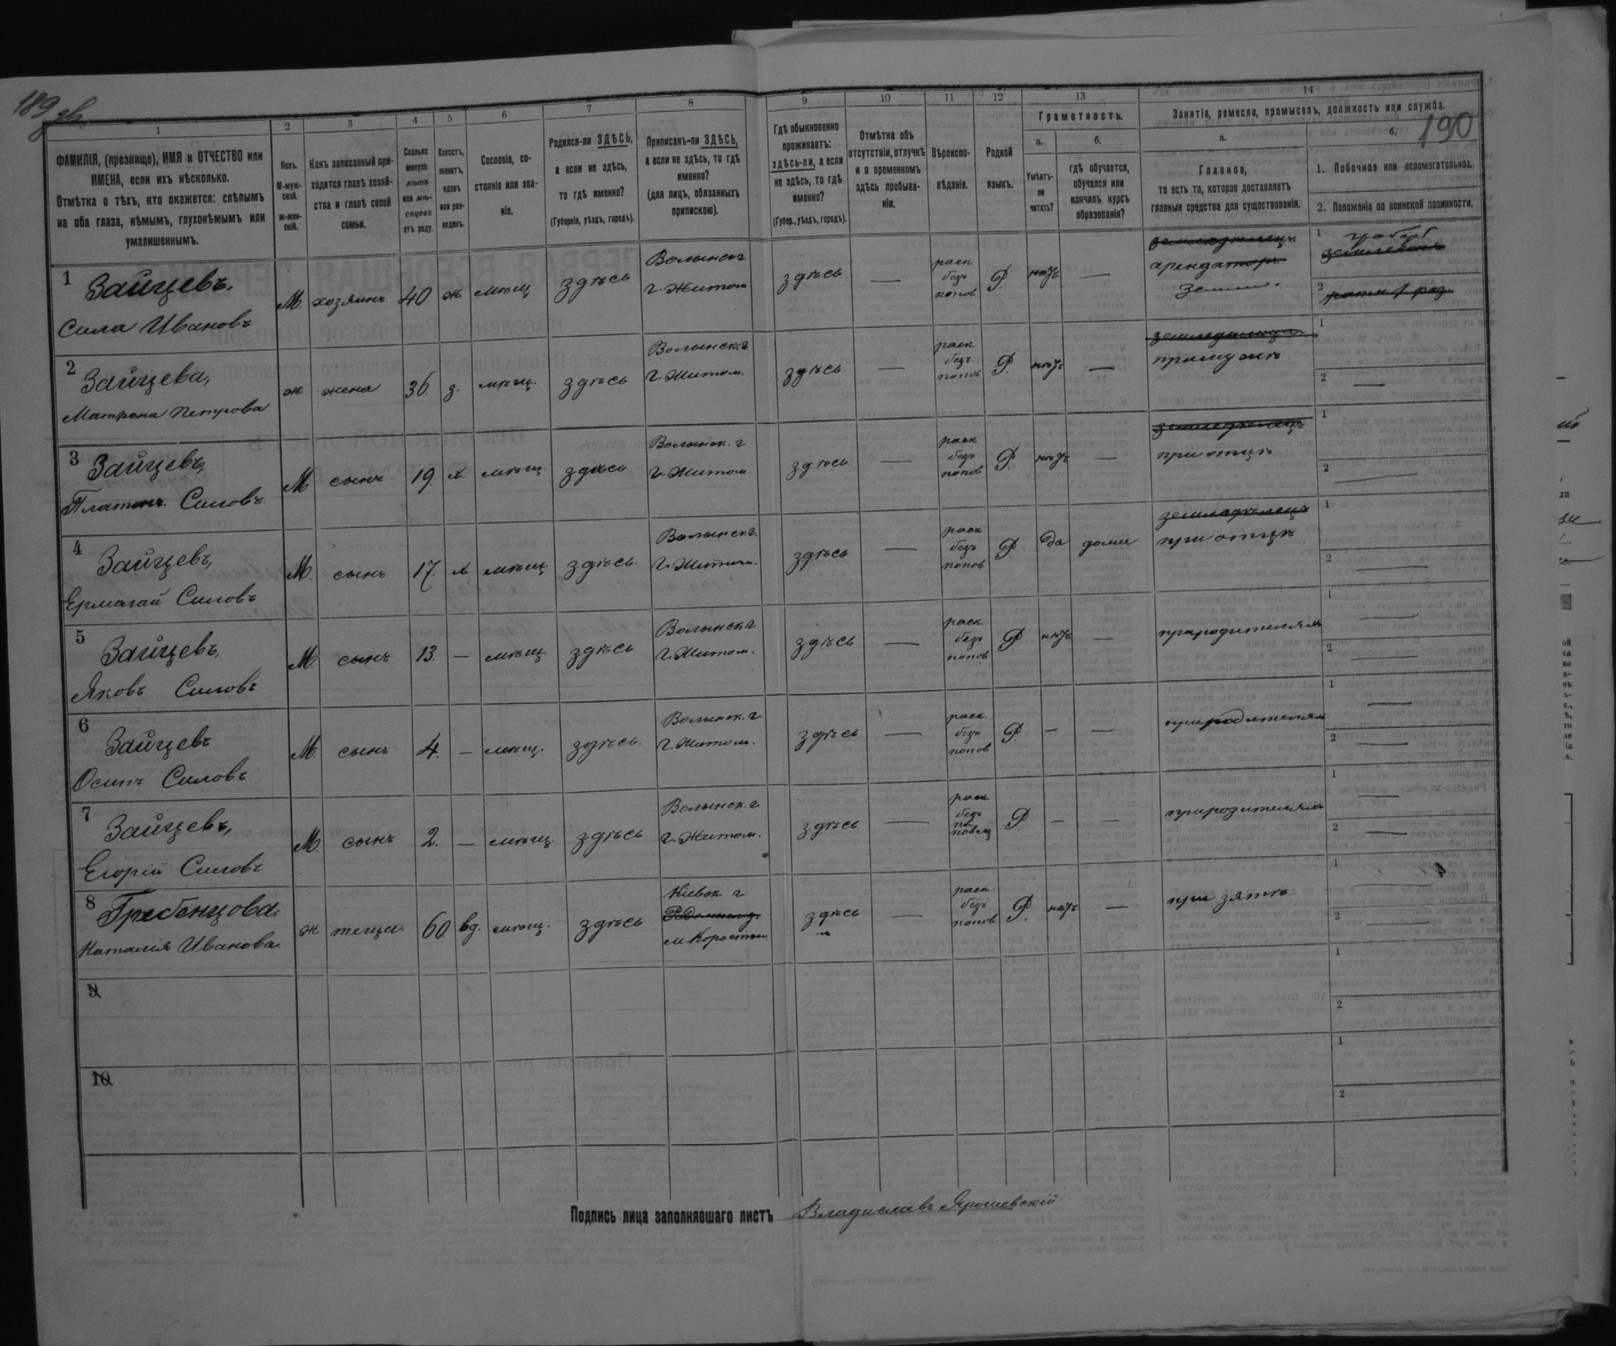 190
1 2 3 4 5 6 7 8 9 10 11 12 13 14
ФАМИЛІЯ, (прозвище), ИМЯ и ОТЧЕСТВО или
ИМЕНА, если ихъ нѣсколько.
Отмѣтка о тѣхъ, кто окажется: слѣпымъ
на оба глаза, нѣмымъ, глухонѣмымъ или
умалишеннымъ.
Полъ.
М-муж-
ской.
ж-жен-
скій.
Какъ записанный при-
ходится главѣ хозяй-
ства и главѣ своей
семьи.
Сколько
минуло
лѣтъ
или мѣ-
сяцевъ
отъ роду.
Холостъ,
женатъ,
вдовъ
или раз-
веденъ.
Сословіе, со-
стояніе или зва-
ніе.
Родился-ли ЗДѢСЬ,
а если не здѣсь,
то гдѣ именно?
(Губернія, уѣздъ, городъ).
Приписанъ-ли ЗДѢСЬ,
а если не здѣсь, то гдѣ
именно?
(для лицъ, обязанныхъ
припискою).
Гдѣ обыкновенно
проживаетъ:
здѣсь-ли, а если
не здѣсь, то гдѣ
именно?
(Губер., уѣздъ, городъ).
Отмѣтка объ
отсутствіи, отлучкѣ
и о временномъ
здѣсь пребыва-
ніи.
Вѣроиспо-
вѣданіе.
Родной
языкъ.
Грамотность.
а.
Умѣетъ-
ли
читать?
б.
гдѣ обучается,
обучался или
кончилъ курсъ
образованія?
Занятія, ремесло, промыселъ, должность или служба.
а.
Главное,
то есть то, которое доставляетъ
главныя средства для существованія.
б.
1. Побочное или вспомогательное.
2. Положеніе по воинской повинности.
1 Зайцевъ,
Сила Ивановъ
М. хозяинъ 40 ж мѣщ. здѣсь
Волынск г
г. Житом
здѣсь —
раск
безъ
попов
Р. нѣтъ —
арендаторъ
земли.
1
2
2 Зайцева,
Матрена Петрова
ж жена 36 з. мѣщ. здѣсь
Волынск. г
г. Житом.
здѣсь. —
раск
безъ
попов
Р. нѣтъ —
при мужѣ
1
2 —
3 Зайцевъ,
Платонъ Силовъ
М сынъ 19. х мѣщ здѣсь
Волынск. г
г. Житом.
здѣсь —
раск
безъ
попов
Р. нѣтъ —
при отцѣ
1
2 —
4 Зайцевъ,
Ермолай Силовъ
М. сынъ 17. х мѣщ здѣсь.
Волынск г.
г. Житом.
здѣсь —
раск
безъ
попов
Р да дома
при отцѣ
1
2
5 Зайцевъ,
Яковъ Силовъ
М. сынъ 13. — мѣщ здѣсь
Волынск г
г. Житом.
здѣсь —
раск
безъ
попов
Р нѣтъ —
при родителяхъ
1 —
2 —
6 Зайцевъ
Осипъ Силовъ
М. сынъ 4. — мѣщ. здѣсь.
Волынск. г
г. Житом.
здѣсь —
раск
безъ
попов
Р. — —
при родителях
1 —
2 —
7 Зайцевъ,
Егорій Силовъ
М. сынъ 2. — мѣщ. здѣсь
Волынск. г
г. Житом.
здѣсь —
раск
безъ
Р — —
при родителяхъ
1 —
2 —
8 Гребенцова.
Наталія Иванова
ж теща 60 вд. мѣщ. здѣсь
Кіевск. г
здѣсь —
раск
безъ
попов
Р. нѣтъ —
при зятѣ
1 —
2 —
9
1
2
10
1
2
Подпись лица заполнявшаго листъ Владиславъ Ярошевскій